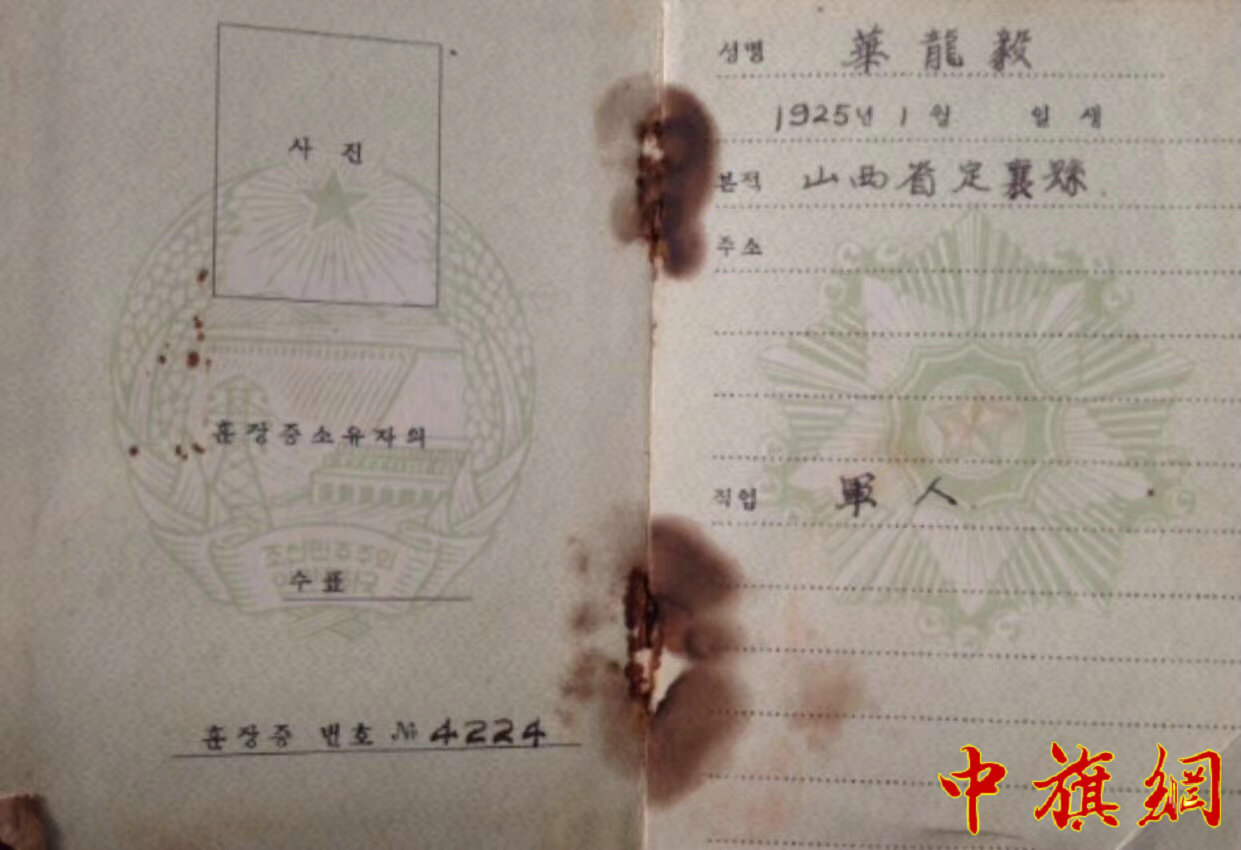 사진
훈장증소유자의
수표
훈장증 번호 № 4224
성명 華龍毅
1925년 1월 일생
본적 山西省定襄縣
주소
직업 軍人
中旗網